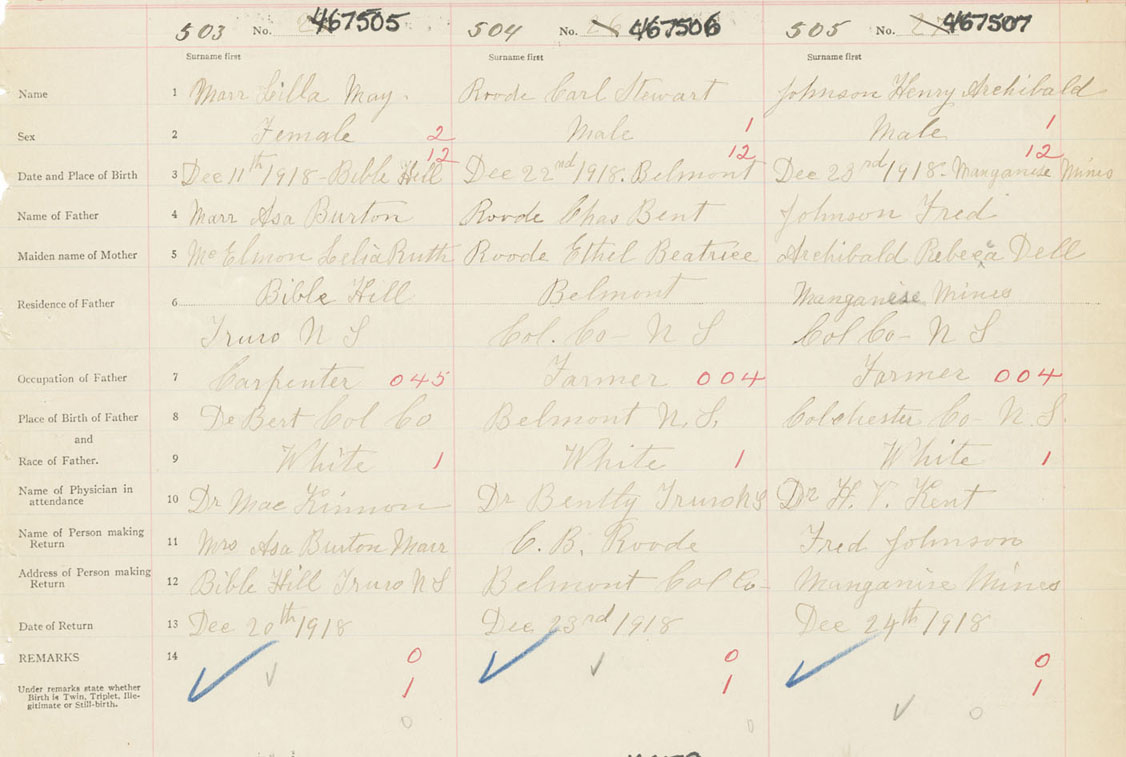 503 No. 467505 504 No. 467506 505 No. 467507
Surname first Surname first Surname first
Name 1 Marr Lilla May. Roode Carl Stewart Johnson Henry Archibald
Sex 2 Female 2 Male 1 Male 1
12 12 12
Date and Place of Birth 3 Dec 11th 1918 - Bible Hill Dec 22nd 1918. Belmont Dec 23rd 1918 - Manganise Mines
Name of Father 4 Marr Asa Burton Roode Chas Bent Johnson Fred
Maiden name of Mother 5 McElmon Lelia Ruth Roode Ethel Beatrice Archibald Rebecca Dell
Residence of Father 6 Bible Hill Belmont Manganese Mines
Truro N S Col. Co - N S Col Co - N S
Occupation of Father 7 Carpenter 045 Farmer 004 Farmer 004
Place of Birth of Father 8 De Bert Col Co Belmont N. S. Colchester Co - N. S.
and
Race of Father. 9 White 1 White 1 White 1
Name of Physician in
attendance 10 Dr Mac Kinnon Dr Bently Truro N S Dr H. V. Kent
Name of Person making
Return 11 Mrs Asa Burton Marr C. B. Roode Fred Johnson
Address of Person making
Return 12 Bible Hill Truro N S Belmont Col Co - Manganise Mines
Date of Return 13 Dec 20th 1918 Dec 23rd 1918 Dec 24th 1918
REMARKS 14 0 0 0
Under remarks state whether
Birth is Twin, Triplet, Ille-
gitimate or Still-birth. 1 1 1
0 0 0